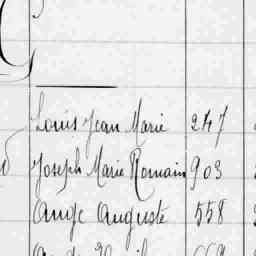 Louis Jean Marie 247
Joseph Marie Romain 903
Ange Auguste 558